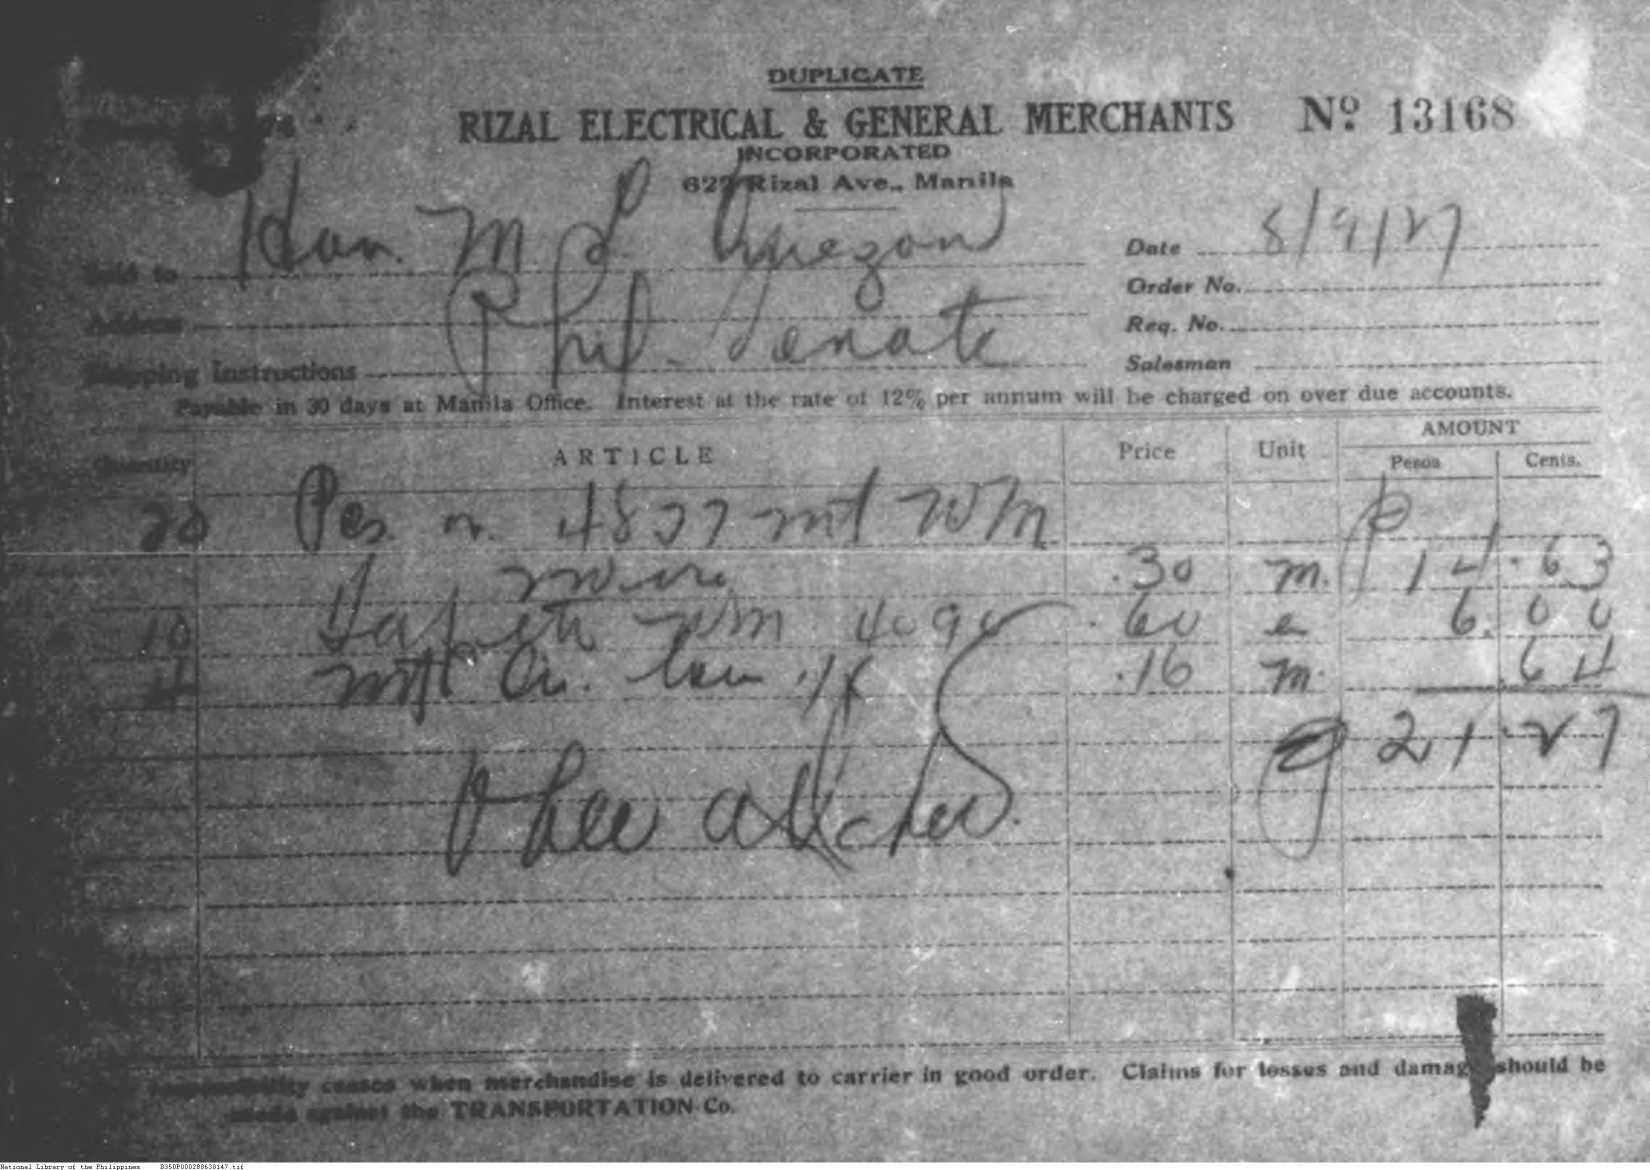 DUPLICATE
RIZAL ELECTRICAL & GENERAL MERCHANTS Nº 13168
INCORPORATED
627 Rizal Ave., Manila
Sold to Hon. M. L. Quezon
Date 8/9/27
Order No.
Address Phil. Senate
Req. No.
Shipping Instructions
Salesman
Payable in 30 days at Manila Office. Interest at the rate of 12% per annum will be charged on over due accounts.
Quantity ARTICLE Price Unit AMOUNT
Pesos Cents.
20 Pcs. 4877 mt WM
wire .30 m. P 14.63
10 WM 4090 .60 6.00
4 .16 m. .64
21.27
causes when merchandise is delivered to carrier in good order. Claims for losses and damage should be
made against the TRANSPORTATION Co.
National Library of the Philippines B350P000288638147.tif